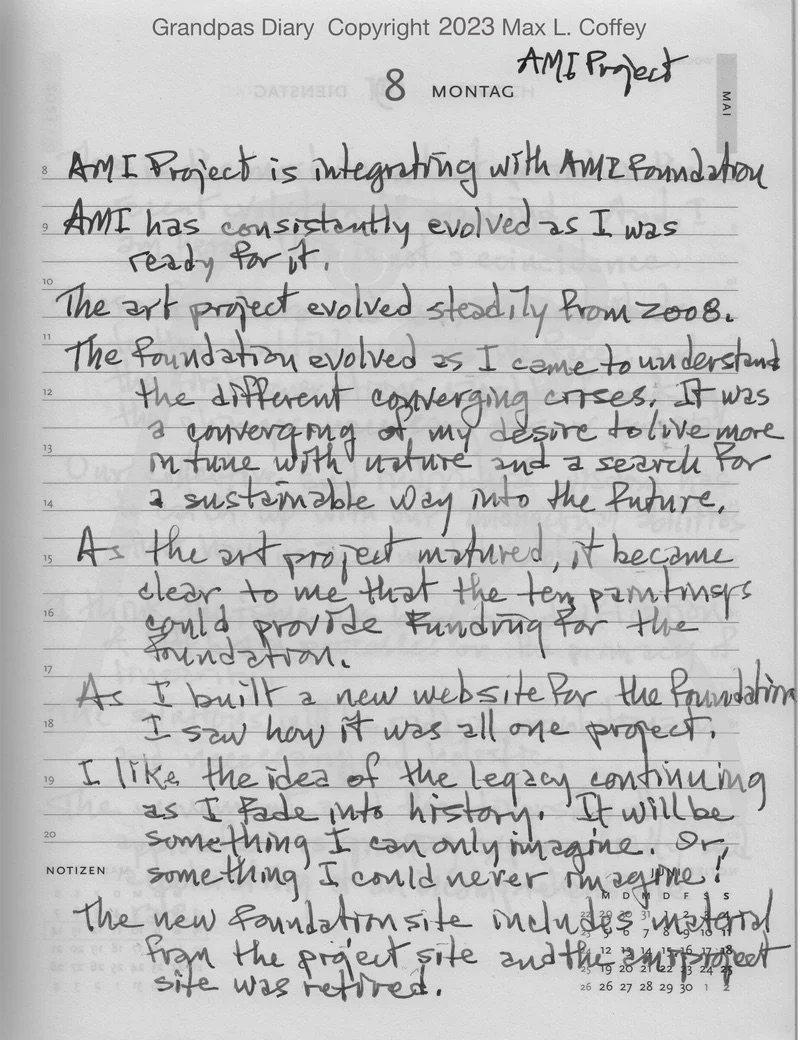 Grandpas Diary Copyright 2023 Max L. Coffey
AMI Project
8 MONTAG
MAI
8 AMI Project is integrating with AMI Foundation
9 AMI has consistantly evolved as I was
ready for it.
10
The art project evolved steadily from 2008.
11 The foundation evolved as I came to understand
12 the different converging crises. It was
a converging of my desire to live more
13 in tune with nature and a search for
14 a sustainable way into the future.
15 As the art project matured, it became
clear to me that the ten paintings
16 could provide funding for the
foundation.
17
As I built a new website for the foundation
18 I saw how it was all one project.
19 I like the idea of the legacy continuing
as I fade into history. It will be
20 something I can only imagine. Or,
NOTIZEN something I could never imagine!
M D M D F S S
The new foundation site includes material
from the project site and the amiproject
site was retired.
25 19 20 21 22 23 24 25
26 26 27 28 29 30 1 2